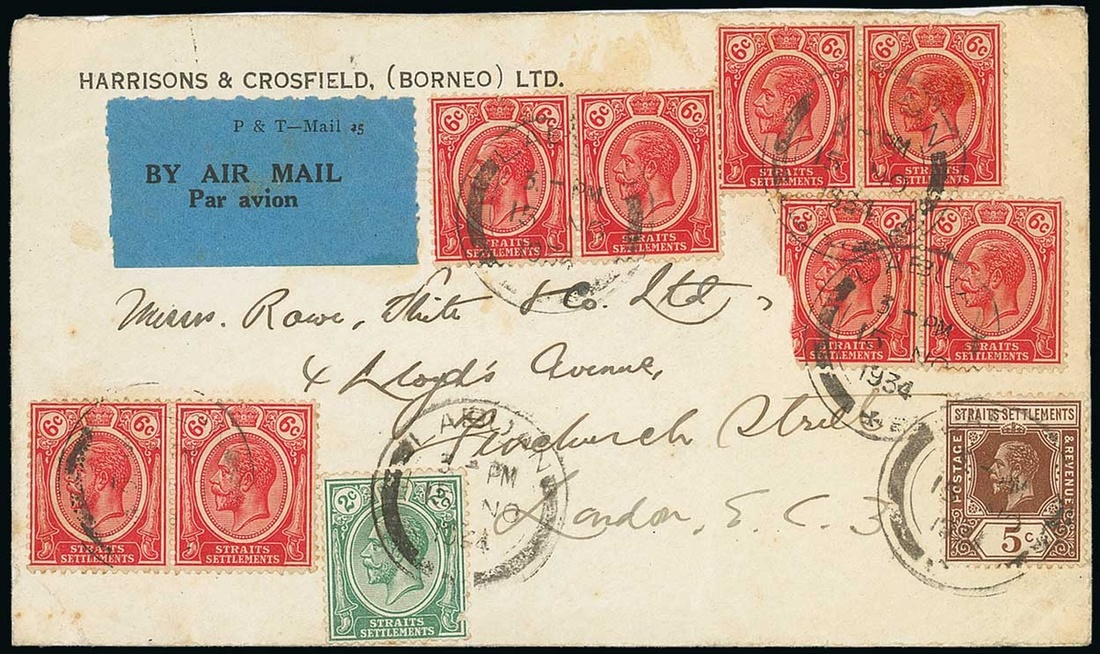 HARRISONS & CROSFIELD, (BORNEO) LTD.
P & T—Mail 25
BY AIR MAIL
Par avion
6c 6c
STRAITS SETTLEMENTS
6c 6c
STRAITS SETTLEMENTS
6c 6c
STRAITS SETTLEMENTS
6c 6c
STRAITS SETTLEMENTS
6c 6c
STRAITS SETTLEMENTS
6c 6c
STRAITS SETTLEMENTS
STRAITS SETTLEMENTS
LABUAN
3 - PM
15 NO
1934
Messrs. Rowe, White & Co. Ltd,
4 Lloyd's Avenue,
Fenchurch Street
London, E. C. 3
6c 6c
STRAITS SETTLEMENTS
6c 6c
STRAITS SETTLEMENTS
2c 2c
STRAITS SETTLEMENTS
3 - PM
NO
STRAITS SETTLEMENTS
POSTAGE & REVENUE
5c